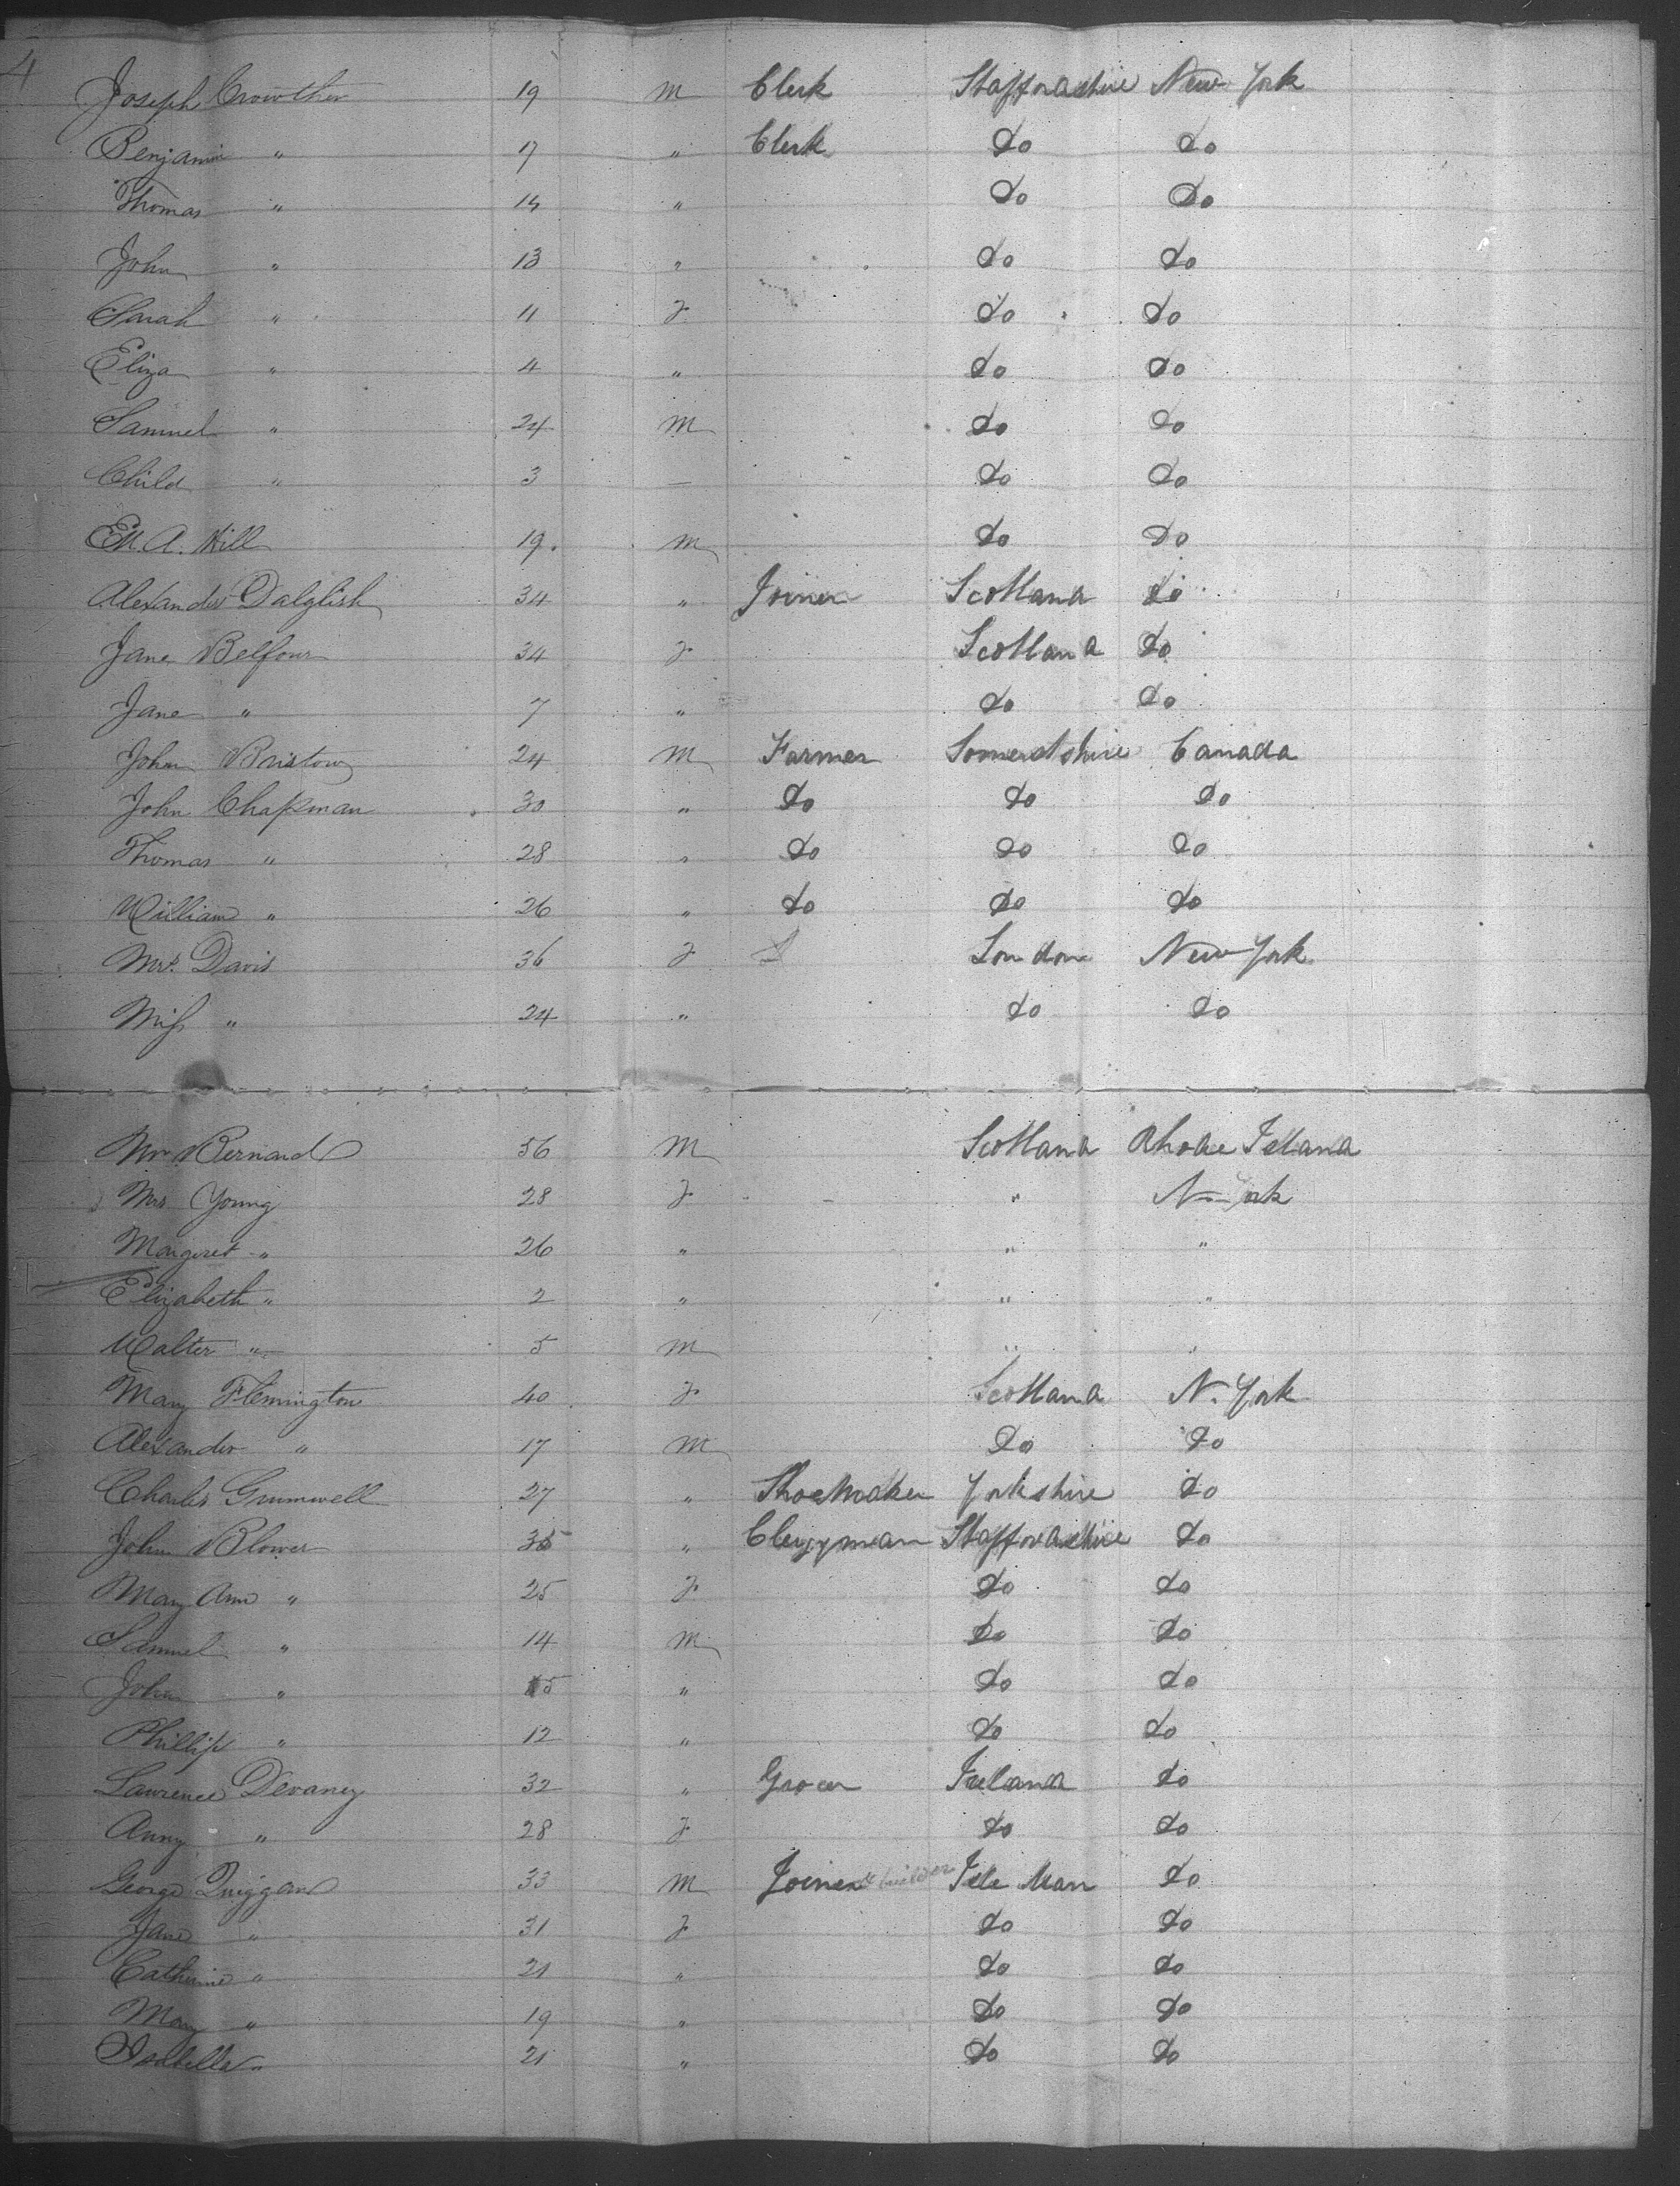 4
Joseph Crowther 19 m Clerk Staffordshire New York
Benjamin " 17 " Clerk do do
Thomas " 14 " do do
John " 13 " do do
Sarah " 11 f do do
Eliza " 4 " do do
Samuel " 24 m do do
Child " 3 — do do
A. Hill 19. m do do
Alexander Dalglish 34 " Joiner Scotland do
Jane Belfour 34 f Scotland do
Jane " 7 " do do
John Bristow 24 m Farmer Somersetshire Canada
John Chapman 30 " do do do
Thomas " 28 " do do do
William " 26 " do do do
Mrs. Davis 36 f London New York
Miss " 24 " do do
Mr Bernard 56 m Scotland Rhode Island
Mrs Young 28 f " N York
Margeret " 26 " " "
Elizabeth " 2 " " "
Walter " 5 m " "
Mary Flemington 40 f Scotland N. York
Alexander " 17 m do do
Charles Grumwell 27 " ShoeMaker Yorkshire do
John Blower 35 " Clergyman Staffordshire do
Mary Ann " 25 f do do
Samuel " 14 m do do
John " 5 " do do
Phillip " 12 " do do
Lawrence Devaney 32 " Grocer Ireland do
Anny " 28 f do do
George Quiggan 33 m Joiner & builder Isle Man do
Jane " 31 f do do
Catherine " 21 " do do
Mary " 19 " do do
Isabella " 21 " do do